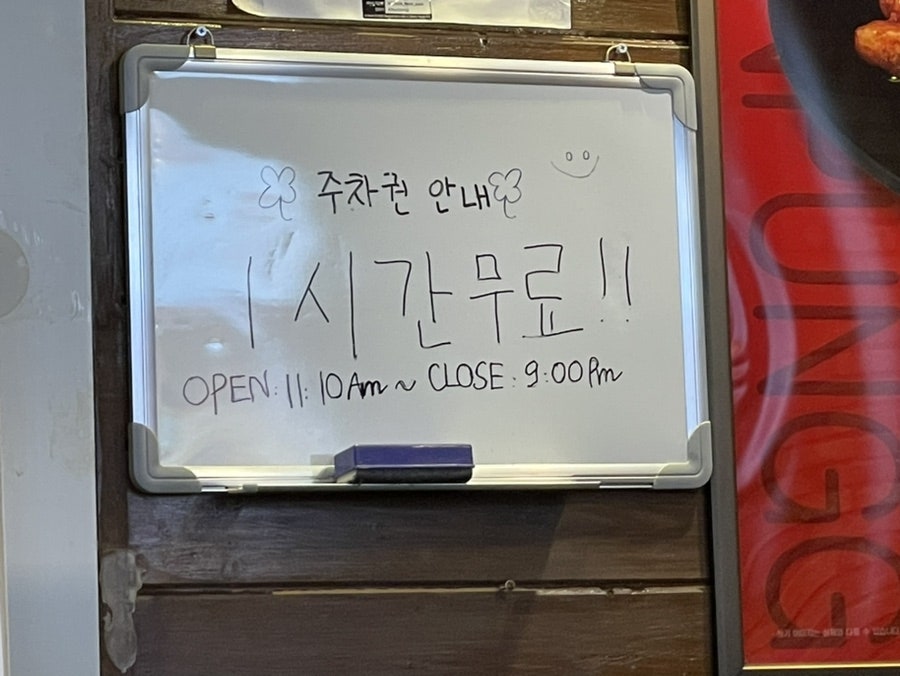 주차권 안내
1시간무료!!
OPEN: 11:10Am ~ CLOSE: 9:00Pm
PUNGG